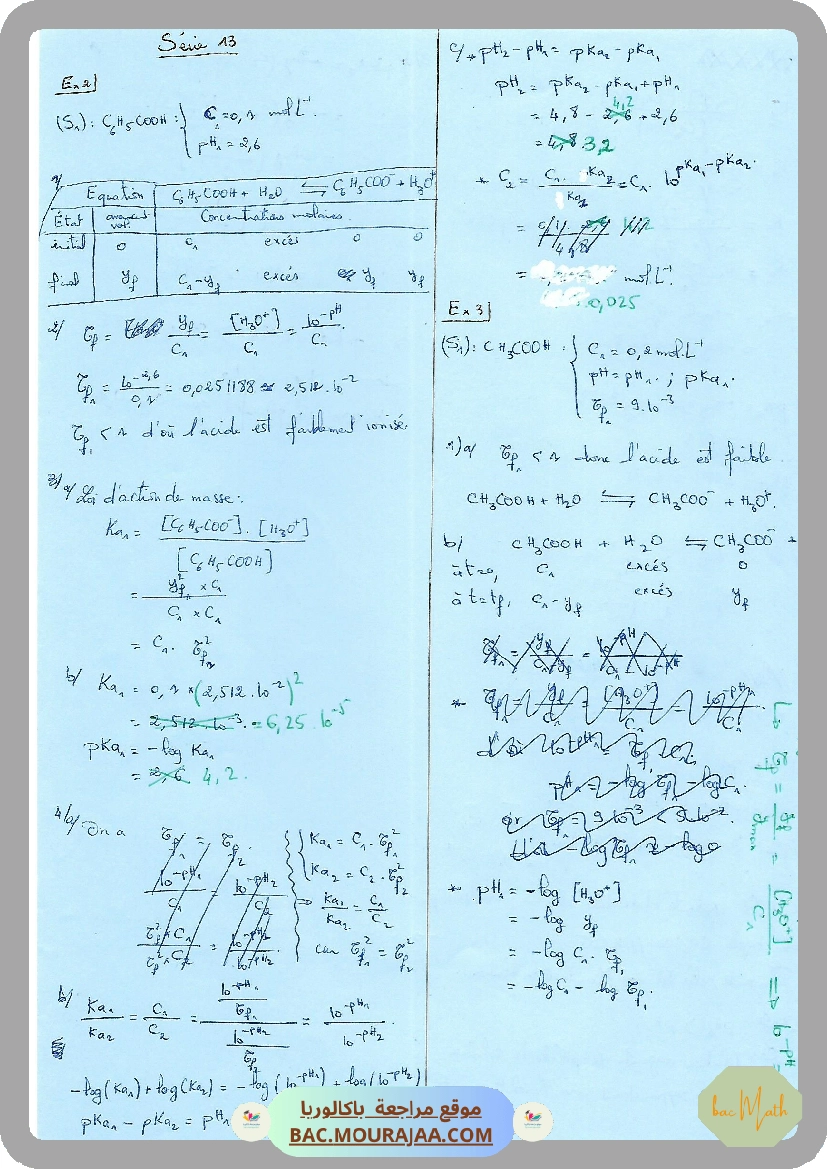 Série 13
Ex 2
(S₁) : C₆H₅COOH : { C = 0,1 mol.L⁻¹
pH₁ = 2,6
1/
Equation C₆H₅COOH + H₂O ⇌ C₆H₅COO⁻ + H₃O⁺
État avancement vol. Concentrations molaires.
initial 0 C₁ excés 0 0
final yf C₁-yf excés yf yf
2/ τf = yf/C₁ = [H₃O⁺]/C₁ = 10^-pH/C₁
τf₁ = 10^-2,6/0,1 = 0,0251188 ≃ 2,512.10⁻²
τf₁ < 1 d'où l'acide est faiblement ionisé.
3/ a/ Loi d'action de masse :
Ka₁ = [C₆H₅COO⁻].[H₃O⁺]/[C₆H₅COOH]
= yf² × C₁/C₁ × C₁
= C₁. τf₁²
b/ Ka₁ = 0,1 × (2,512.10⁻²)²
= 2,512.10⁻³. = 6,25.10⁻⁵
pKa₁ = -log Ka₁
= 2,6 4,2.
4/a/ On a τf₁ = τf₂
10^-pH₁/C₁ = 10^-pH₂/C₂
Ka₁ = C₁.τf₁²
Ka₂ = C₂.τf₂²
⇒ Ka₁/Ka₂ = C₁/C₂
car τf₁² = τf₂²
b/ Ka₁/Ka₂ = C₁/C₂ = (10^-pH₁/τf₁)/(10^-pH₂/τf₂) = 10^-pH₁/10^-pH₂.
-log(Ka₁) + log(Ka₂) = -log(10^-pH₁) + log(10^-pH₂)
pKa₁ - pKa₂ = pH₁
c/ * pH₂ - pH₁ = pKa₂ - pKa₁
pH₂ = pKa₂ - pKa₁ + pH₁
= 4,8 - 2,6 4,2 + 2,6
= 4,8 3,2
* C₂ = C₁. Ka₂/Ka₁ = C₁. 10^pKa₁-pKa₂.
= mol.L⁻¹
0,025
Ex 3
(S₁) : CH₃COOH : { C₁ = 0,2 mol.L⁻¹
pH = pH₁. ; pKa₁.
τf₁ = 9.10⁻³
1) a/ τf₁ < 1 donc l'acide est faible.
CH₃COOH + H₂O ⇌ CH₃COO⁻ + H₃O⁺.
b/ CH₃COOH + H₂O ⇌ CH₃COO⁻ +
à t=0, C₁ excés 0
à t=tf, C₁-yf excés yf
* τf₁ = yf/C₁ = [H₃O⁺]/C₁ = 10^-pH₁/C₁
pH₁ = -log τf₁ - log C₁.
* pH₁ = -log [H₃O⁺]
= -log yf
= -log C₁. τf₁
= -log C₁ - log τf₁.
↳ τf = yf/ymax = [H₃O⁺]/C₁ ⇒ 10^-pH =
موقع مراجعة باكالوريا
BAC.MOURAJAA.COM
bac Math